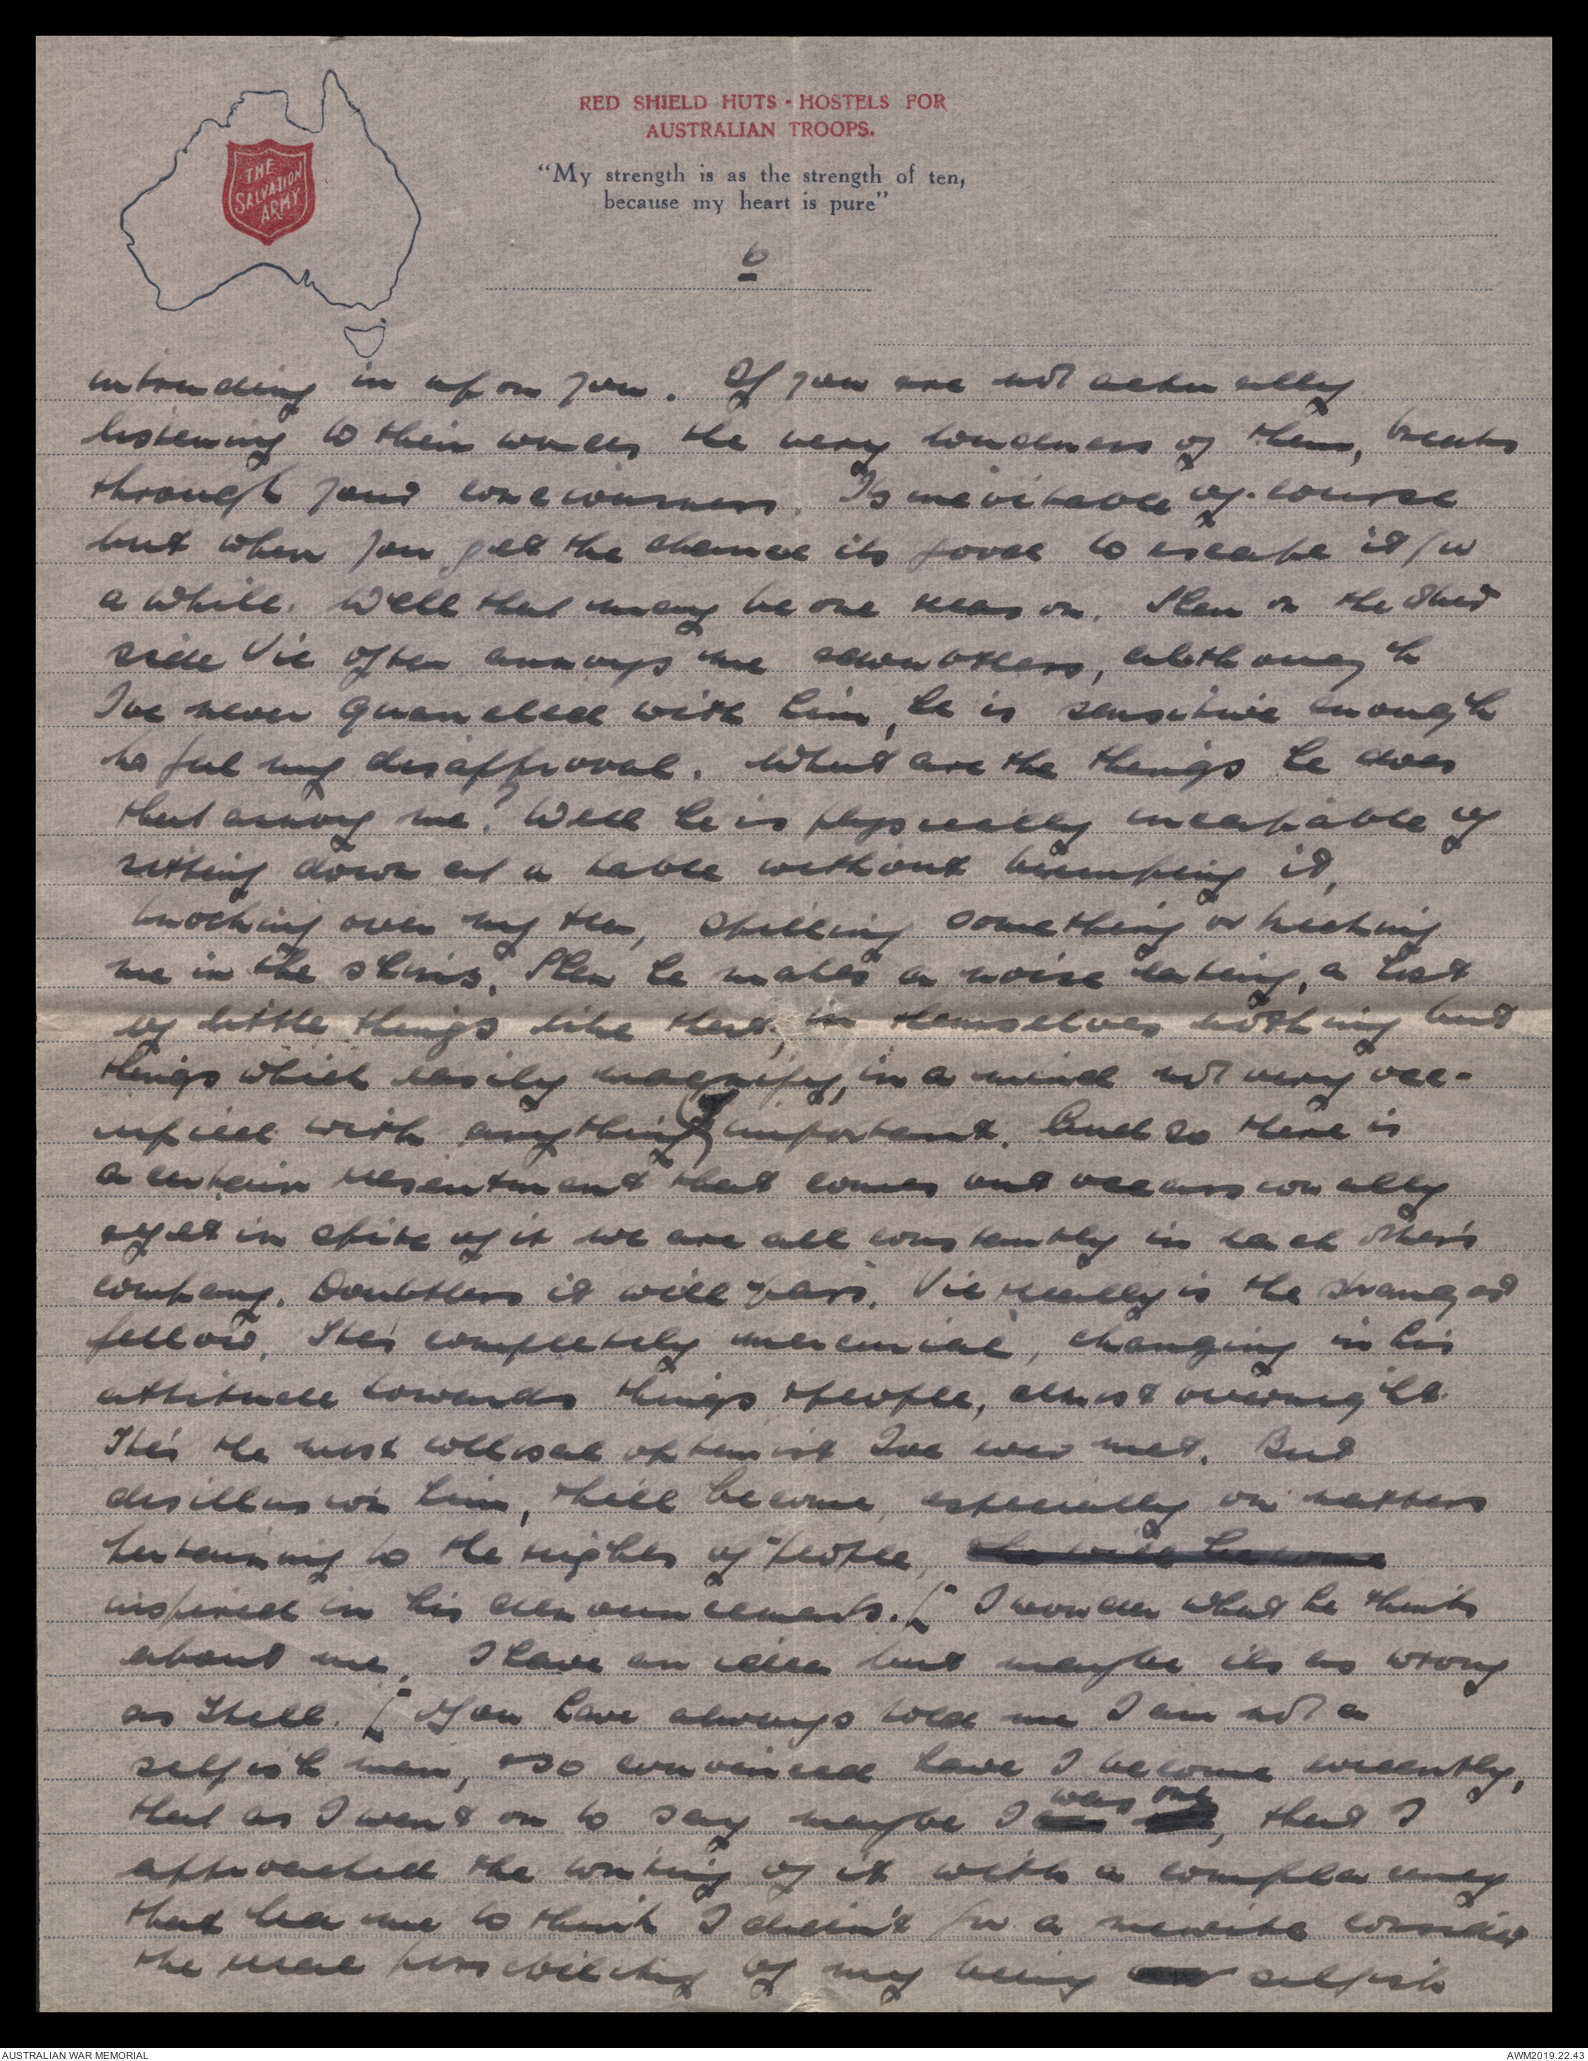 RED SHIELD HUTS - HOSTELS FOR
AUSTRALIAN TROOPS.
"My strength is as the strength of ten,
because my heart is pure"
THE
SALVATION
ARMY
6
intruding in upon you. If you are not actually
listening to their words the very loudness of them, breaks
through your conciousness. Its inevitable of course
but when you get the chance its good to escape it for
a while. Well that may be one reason. Then on the other
side Vic often annoys me & doubtless, although
I've never quarelled with him, he is sensitive enough
to feel my disapproval. What are the things he does
that annoy me? Well he is physically incapable of
sitting down at a table without bumping it,
knocking over my tea, spilling something or kicking
me in the shins. Then he makes a noise eating, a list
of little things like that, in themselves nothing but
things which easily magnify, in a mind not very occ-
upied with anything important. And so there is
a certain resentment that comes out occassionally
& yet in spite of it we are all constantly in each other's
company. Doubtless it will pass. Vic really is the strangest
fellow. He's completely mercurial, changing in his
attitude towards things & people, almost overnight.
He's the most collosal optimist I've ever met. But
disillusion him, & he'll become, especially on matters
pertaining to the rights of people,
inspired in his denouncements. [ I wonder what he thinks
about me. I have an idea but maybe its as wrong
as Hell. [ You have always told me I am not a
selfish man, & so convinced have I become evidently,
that as I went on to say maybe I was one, that I
approached the writing of it with a complacency
that led me to think I didn't for a minute consider
the real possibility of my being selfish
AUSTRALIAN WAR MEMORIAL
AWM2019.22.43